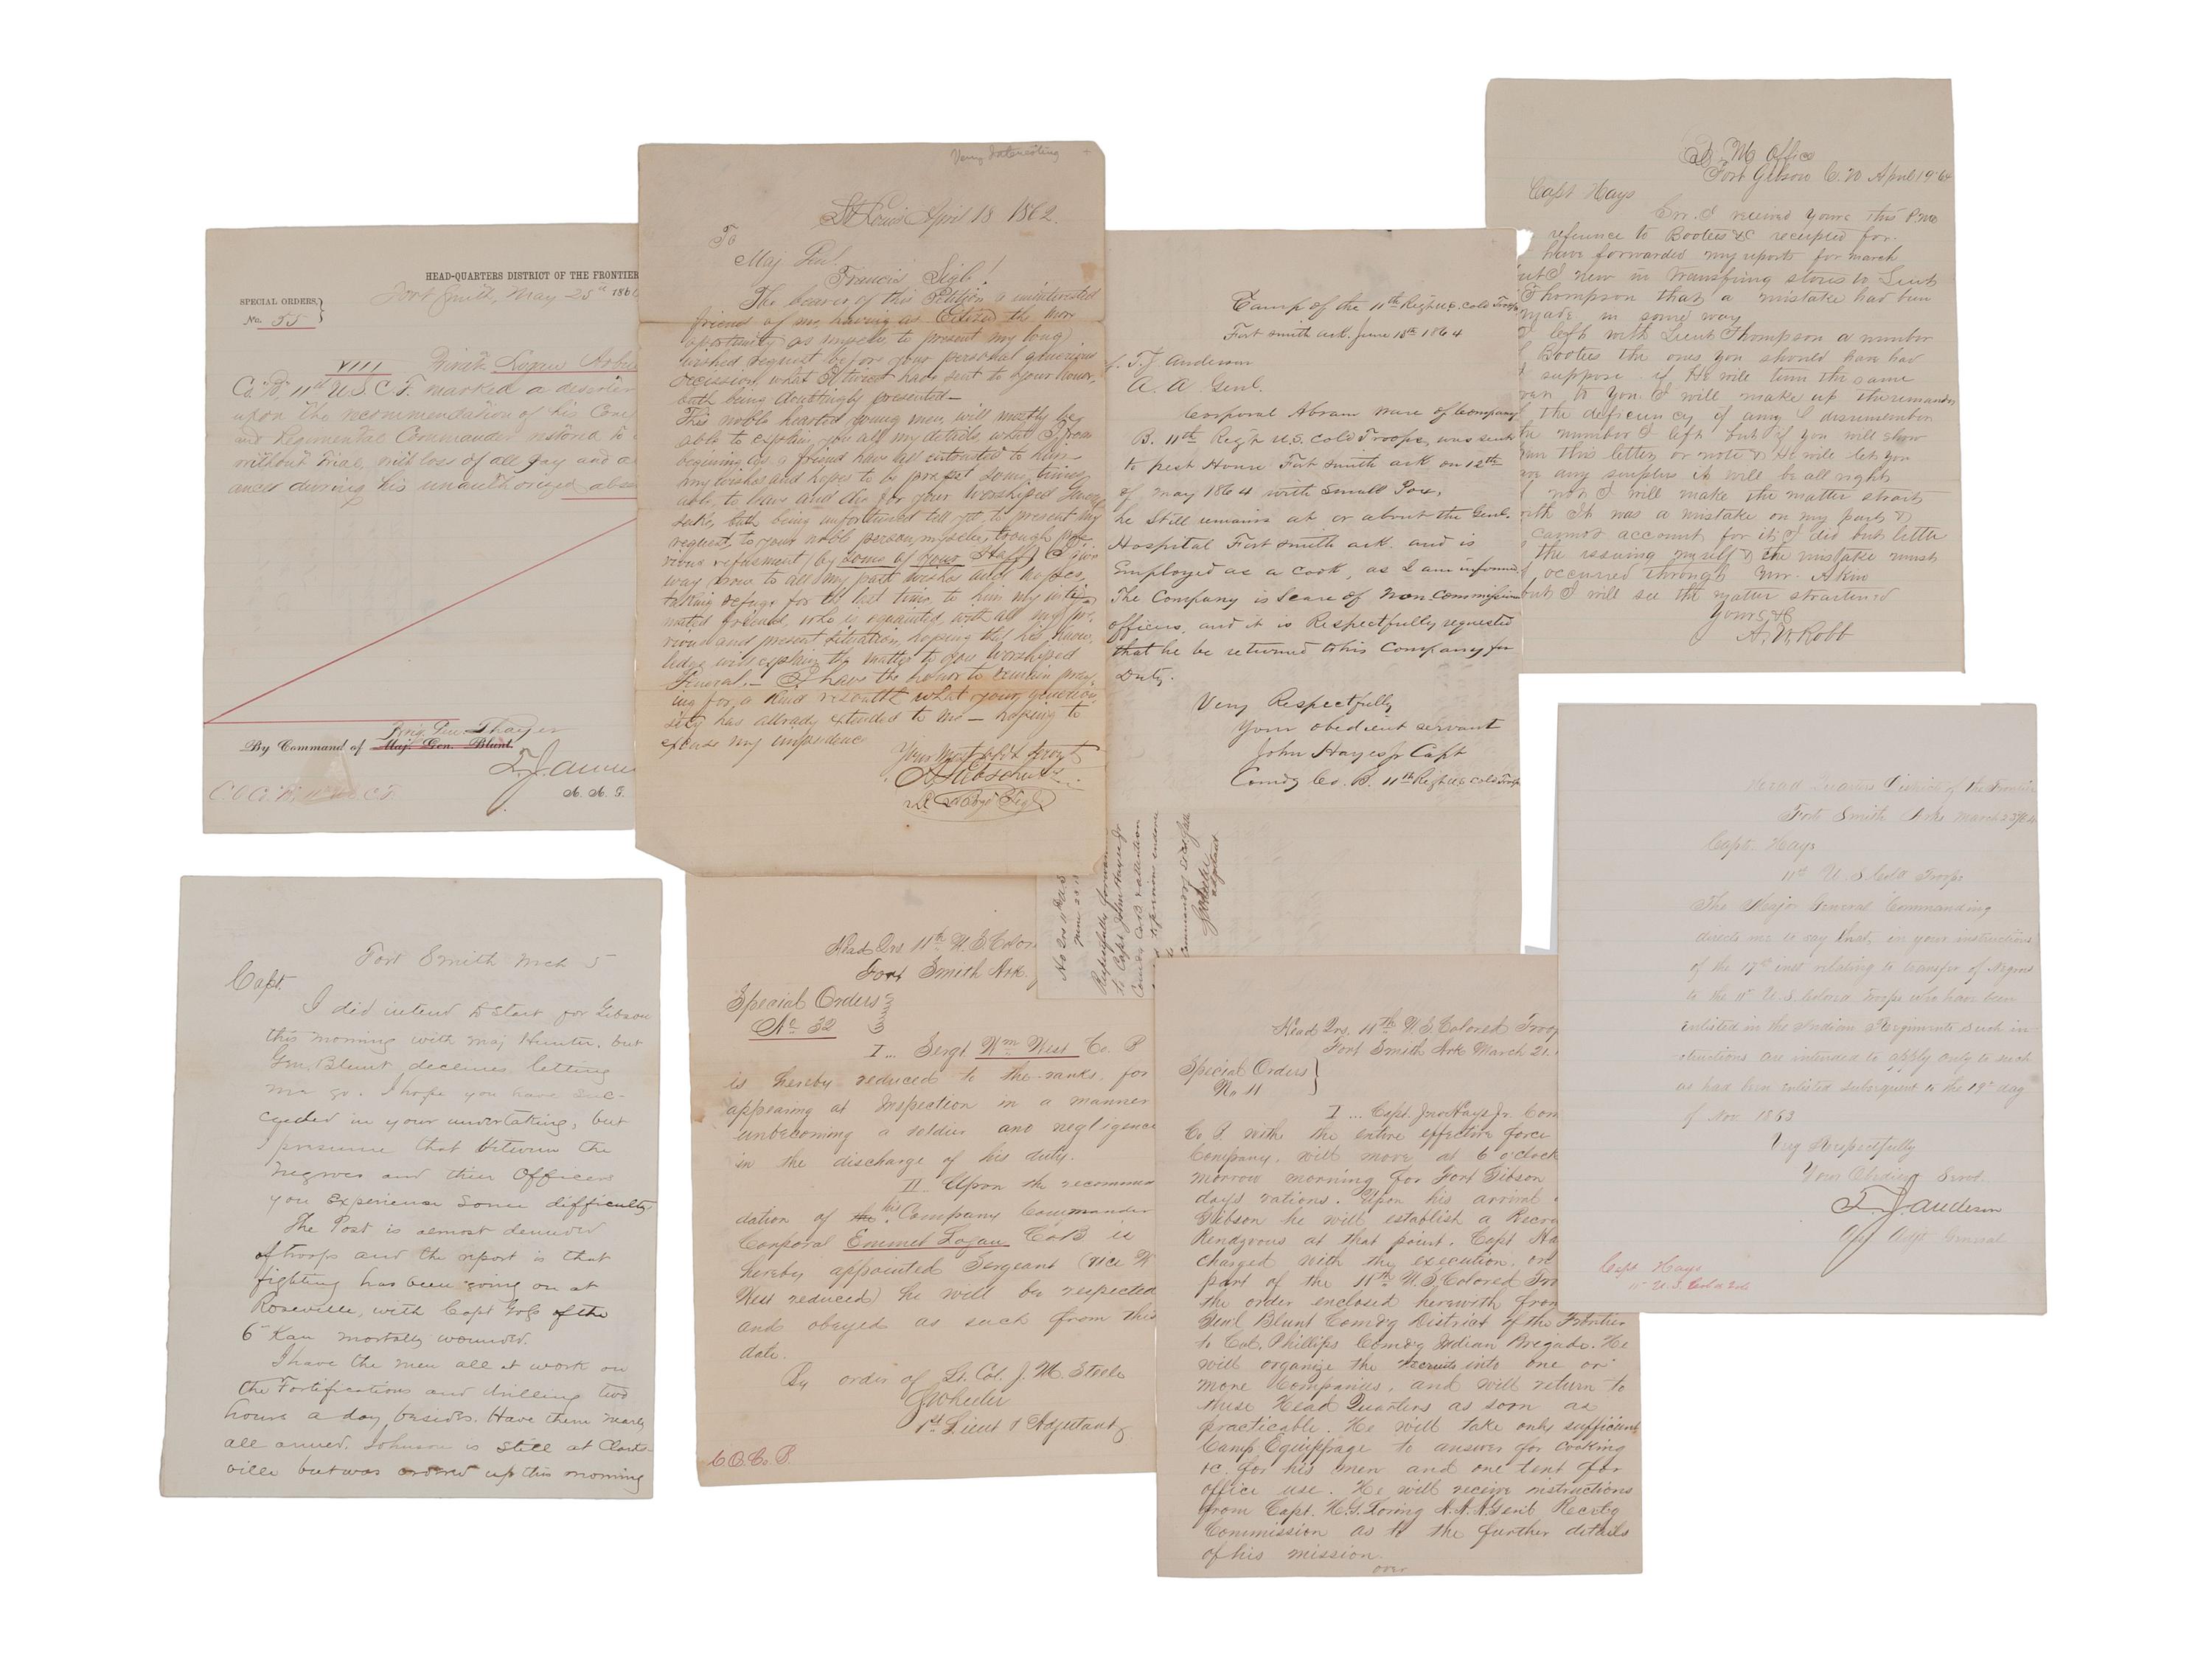 HEAD-QUARTERS DISTRICT OF THE FRONTIER
Fort Smith, May 25th 186
SPECIAL ORDERS,
No. 55
VIII Private Logan
Co. B, 11th U.S.C.T. marked a deserter
upon the recommendation of his Com
and Regimental Commander restored to
without trial, with loss of all pay and a
ances during his unauthorized abse
Brig. Gen. Thayer
By Command of Maj. Gen. Blunt.
T. J. Ander
A. A. G.
C.O. Co. B, 11th U.S.C.T.
Very Interesting
St Louis April 18 1862.
To
Maj Genl.
Francis Sigl!
The bearer of this Petition a uninterested
friend of me, having as the more
oportunity as myself, to present my long
wished request before your personal generious
decission, what I twice have sent to your honor,
both being doubtingly presented—
This noble hearted young man, will mostly be
able to explain you all my details, what I from
begining as a friend have all entrusted to him—
my wishes and hopes to be some times
able to live and die for your worshiped
sake, both being unfortuned till yet, to present my
request to your noble person myself, trough pre-
vious refusment (by some of your Staff) I
way now to all my past wishes and hopes,
taking refuge for the last time, to him my
friend, who is with all my pre-
vious and present situation, hoping that his know-
ledge will explain the matter to you worshiped
General.— I have the honor to remain pray-
ing for a kind what your generio-
sity has allready extended to me — hoping to
excuse my impudence
Your Most obdt
Camp of the 11th Regt U.S. Cold Troops
Fort Smith Ark. June 18th 1864
T. J. Anderson
A. A Genl.
Corporal Abram Ware of Company
B. 11th Regt U.S. Cold Troops, was sent
to pest House Fort Smith Ark on 12th
of may 1864 with Small Pox,
he Still remains at or about the Genl.
Hospital Fort Smith Ark. and is
Employed as a cook, as I am informed
The Company is Scarce of Non Commission
officers, and it is Respectfully requested
that he be returned to his Company for
Duty.
Very Respectfully
Your obedient servant
John Hayes Jr Capt
Comdg Co. B. 11th Regt U.S Cold Troops
Respectfully forwar
to Capt John Hayes Jr
Comdg Co B
adjutant
Q. M Office
Fort Gibson C.N April 19 64
Capt Hays
Sir. I received yours this P.M
refference to Bootees &c receipted for.
have forwarded my reports for march
but I new in transfering stores to Lieut
Thompson that a mistake had been
made in some way
I left with Lieut Thompson a number
Bootees the ones you should have had
suppose if He will turn the same
over to you. I will make up the remainder
the deficiency if any I disremember
the number I left but if you will show
him this letter or note & He will let you
have any surplus it will be all right
not I will make the matter straits
with It was a mistake on my part &
cannot account for it, I did but little
the issuing myself & the mistake must
occured through Mr. Akin
but I will see the matter straitened
Yours &c
A. W. Robb
Head Quarters District of the Frontier
Fort Smith Arks March 23/64
Capt. Hays
11th U. S Cold Troops
The Major General Commanding
directs me to say that, in your instructions
of the 17th inst relating to transfer of Negros
to the 11th U. S. Colored Troops who have been
enlisted in the Indian Regiments such in-
structions are intended to apply only to such
as had been enlisted subsequent to the 19th day
of Nov. 1863
Very Respectfully
Your Obedient Servt.
T. J. Anderson
Asst Adjt General
Capt. Hays
11th U. S. Cold
Fort Smith Mch 5
Capt.
I did intend to start for Gibson
this morning with Maj Hunter. but
Gen Blunt declines letting
me go. I hope you have suc-
ceeded in your undertaking, but
I presume that between the
Negroes and their Officers
you experience some difficulty
The Post is almost denuded
of troops and the report is that
fighting has been going on at
Roseville, with Capt Gofs of the
6th Kan mortally wounded.
I have the men all at work on
the Fortifications and drilling two
hours a day, besides. Have them nearly
all armed. Johnson is still at Clarks-
ville but was ordered up this morning
Head Qrs 11th U. S. Color
Fort Smith Ark.
Special Orders
No 32
I... Sergt. Wm West Co. B
is hereby reduced to the ranks, for
appearing at Inspection in a manner
unbecoming a soldier and negligence
in the discharge of his duty.
II.. Upon the recommen
dation of the his Company Commander
Corporal Emmet Logan Co B is
hereby appointed Sergeant (vice W
West reduced) he will be respected
and obeyed as such from this
date.
By order of Lt. Col. J. M. Steele
J Wheeler
1st Lieut & Adjutant
C O. Co. B.
Head Qrs. 11th U. S. Colored Troop
Fort Smith Ark March 21.
Special Orders
No 11
I ... Capt. Jno Hays Jr. Com
Co B. with the entire effective force
Company, will move at 6 o'clock
morrow morning for Fort Gibson
days rations. Upon his arrival
Gibson he will establish a Recru
Rendezvous at that point. Capt Ha
charged with the execution, on
part of the 11th U. S. Colored Tro
the order enclosed herewith from
Genl Blunt Comdg District of the Frontier
to Col. Phillips Comdg Indian Brigade. He
will organize the recruits into one or
more Companies, and will return to
these Head Quarters as soon as
practicable. He will take only sufficient
Camp Equippage to answer for cooking
&c. for his men and one tent for
office use. He will receive instructions
from Capt. H. G. Loring A. A. A Genl Recrtg
Commission as to the further details
of his mission.
over